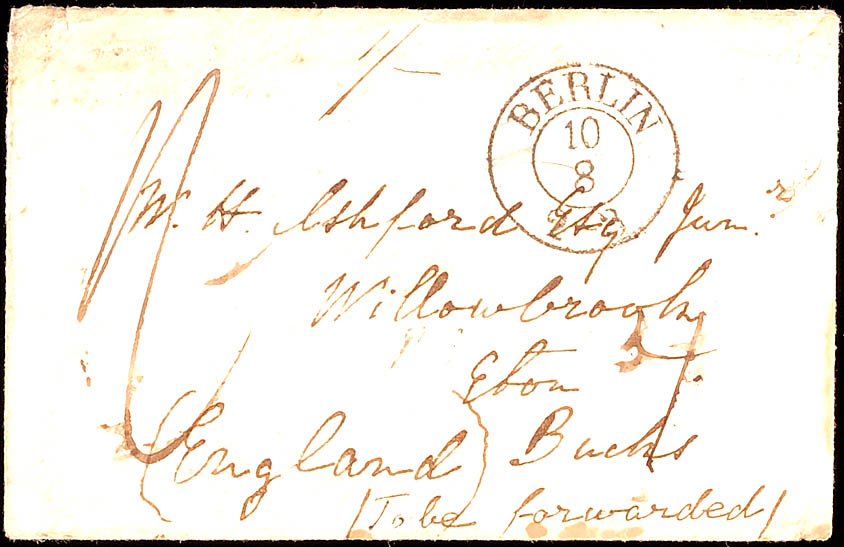 1/-
BERLIN
10
8
W. H. Ashford Esq Jun.r
Willowbrook
Eton
(England) Bucks
(To be forwarded)